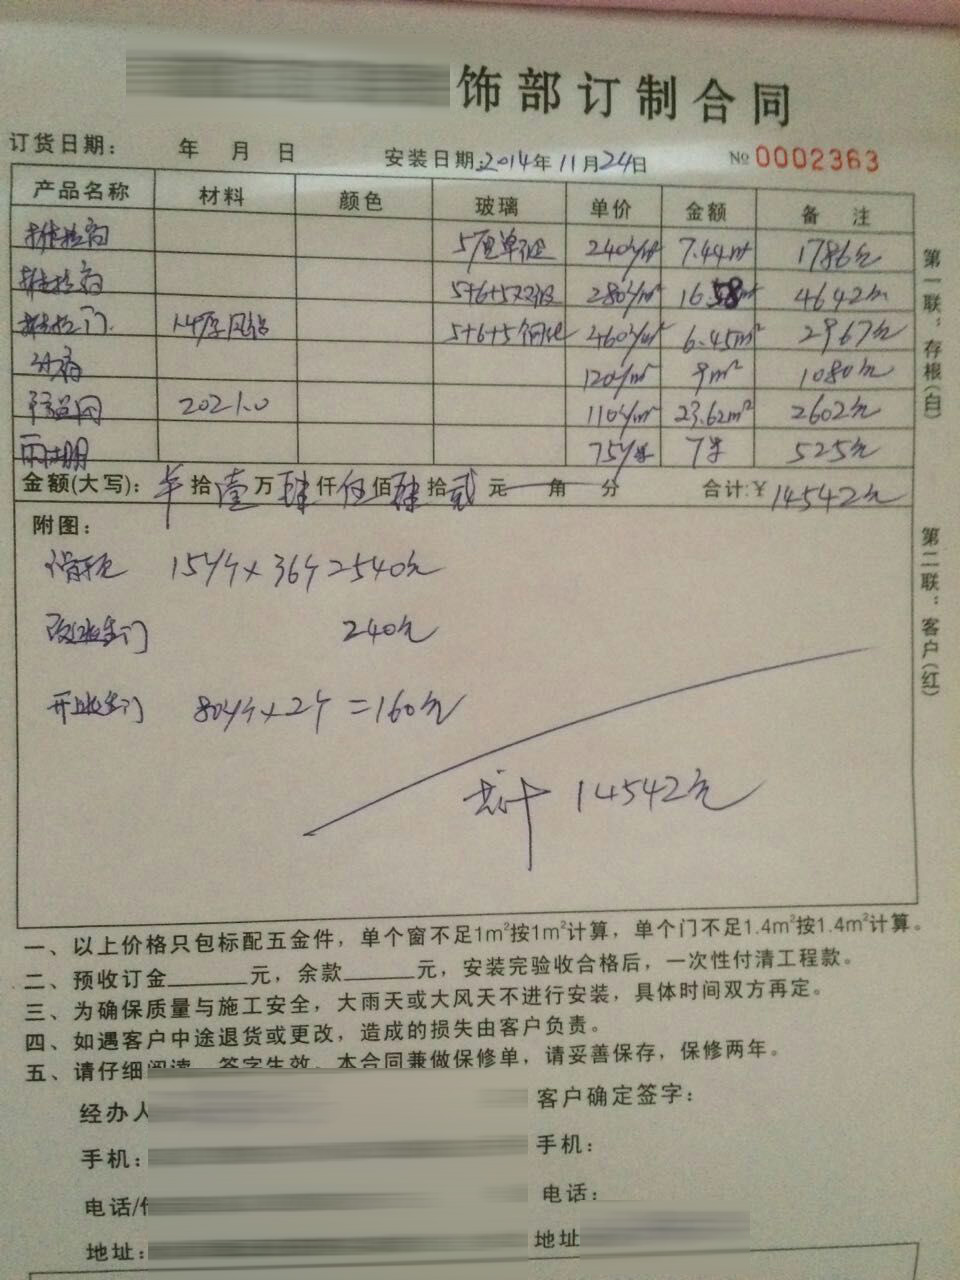 饰部订制合同
订货日期： 年 月 日 安装日期:2014年11月24日 № 0002363
产品名称 材料 颜色 玻璃 单价 金额 备 注
推拉窗 5厘单玻 240元/m² 7.44m² 1786元
推拉窗 5+6+5双玻 280元/m² 16.58m² 4642元
推拉门 1.4厚风铝 5+6+5钢化 460元/m² 6.45m² 2967元
120元/m² 9m² 1080元
110元/m² 23.62m² 2602元
雨棚 75元/米 7米 525元
金额(大写): 拾壹万肆仟伍佰肆拾贰元 角 分 合计:¥ 14542元
第一联：存根(白)
第二联：客户(红)
附图：
15元/个×36个 2540元
240元
80元/个×2个=160元
共计 14542元
一、以上价格只包标配五金件，单个窗不足1m²按1m²计算，单个门不足1.4m²按1.4m²计算。
二、预收订金______元，余款______元，安装完验收合格后，一次性付清工程款。
三、为确保质量与施工安全，大雨天或大风天不进行安装，具体时间双方再定。
四、如遇客户中途退货或更改，造成的损失由客户负责。
五、请仔细阅读，签字生效。本合同兼做保修单，请妥善保存，保修两年。
经办人 客户确定签字：
手机： 手机：
电话/ 电话：
地址： 地址